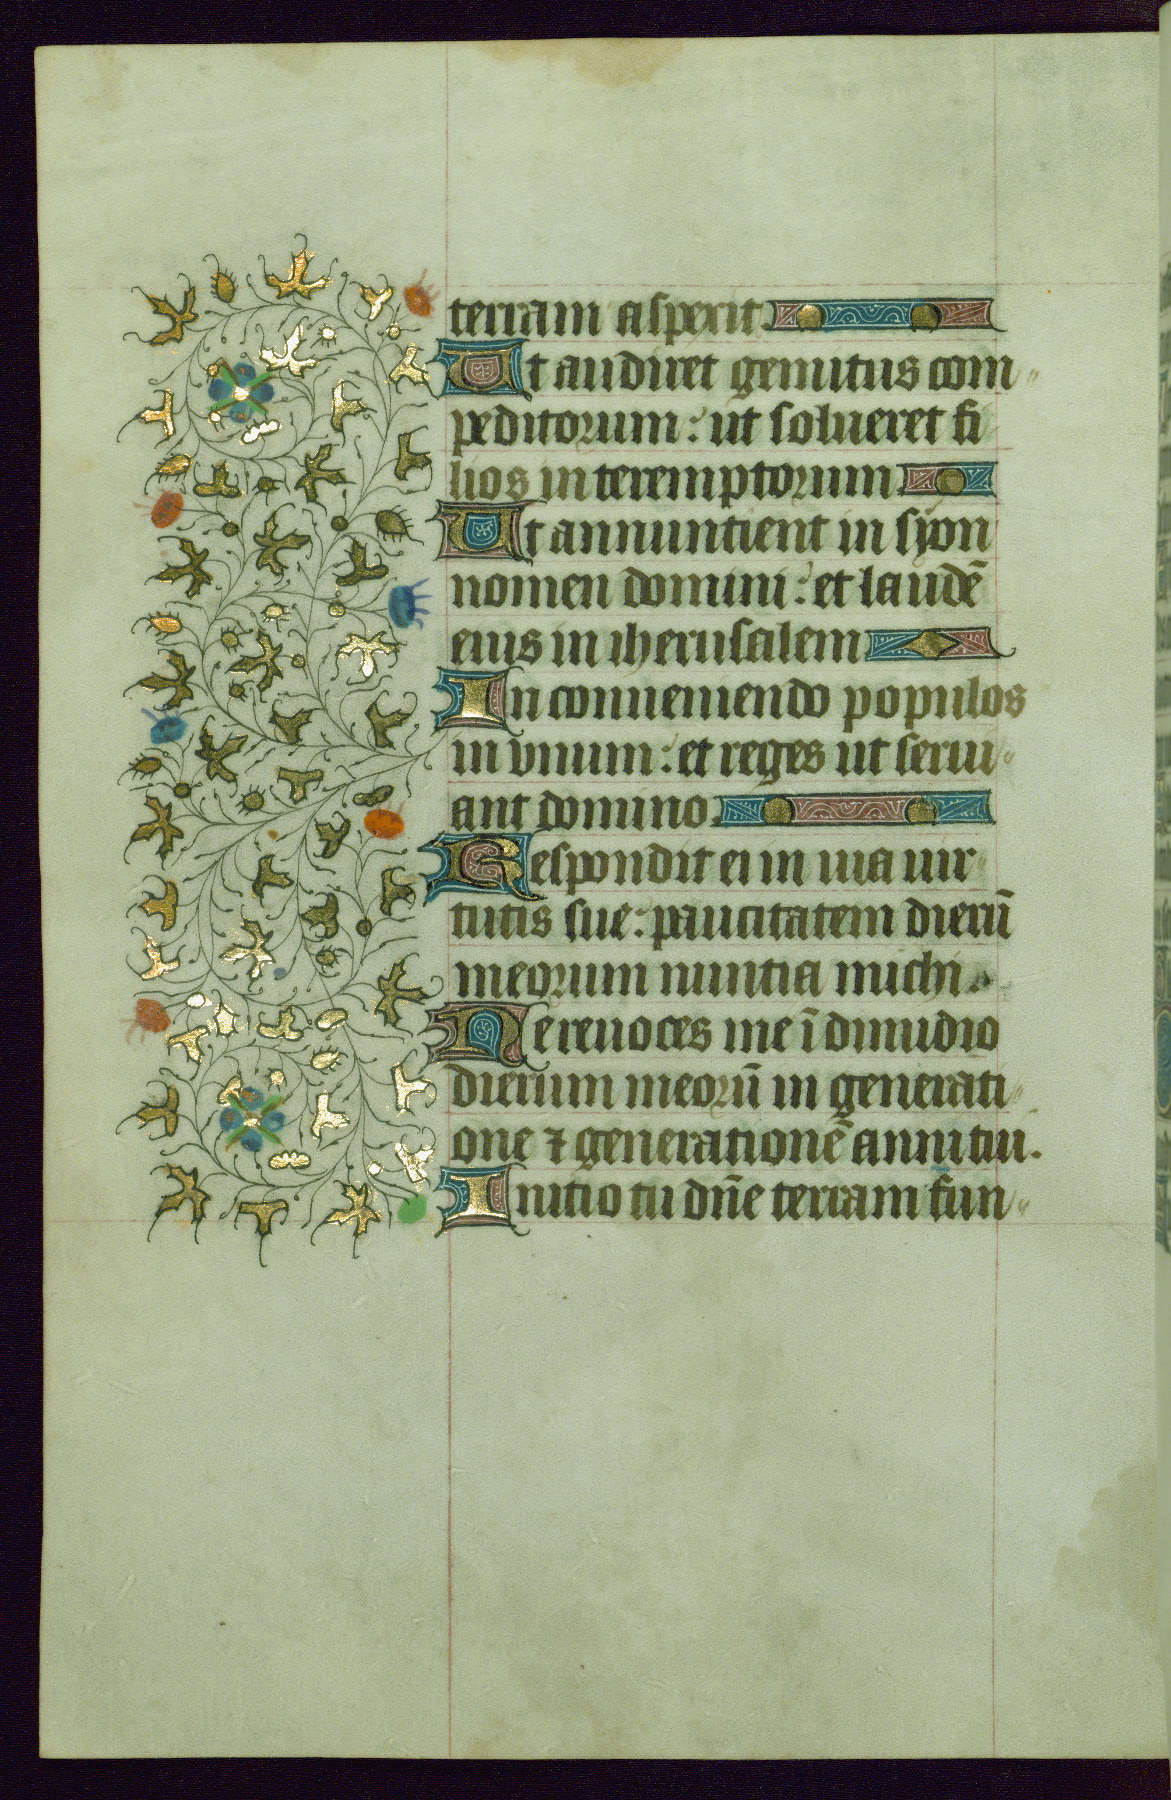 terram asperit.
Ut audiret gemitus com
peditorum: ut solueret fi
lios interemptorum.
Ut annuntient in syon
nomen domini: et laudē
eius in iherusalem
In conueniendo populos
in vnum: et reges ut serui
ant domino.
Respondit ei in uia uir
tutis sue: paucitatem dierū
meorum nuntia michi.
Ne reuoces me ī dimidio
dierum meorū in generati
one ⁊ generationē anni tui.
Initio tu dn̄e terram fun